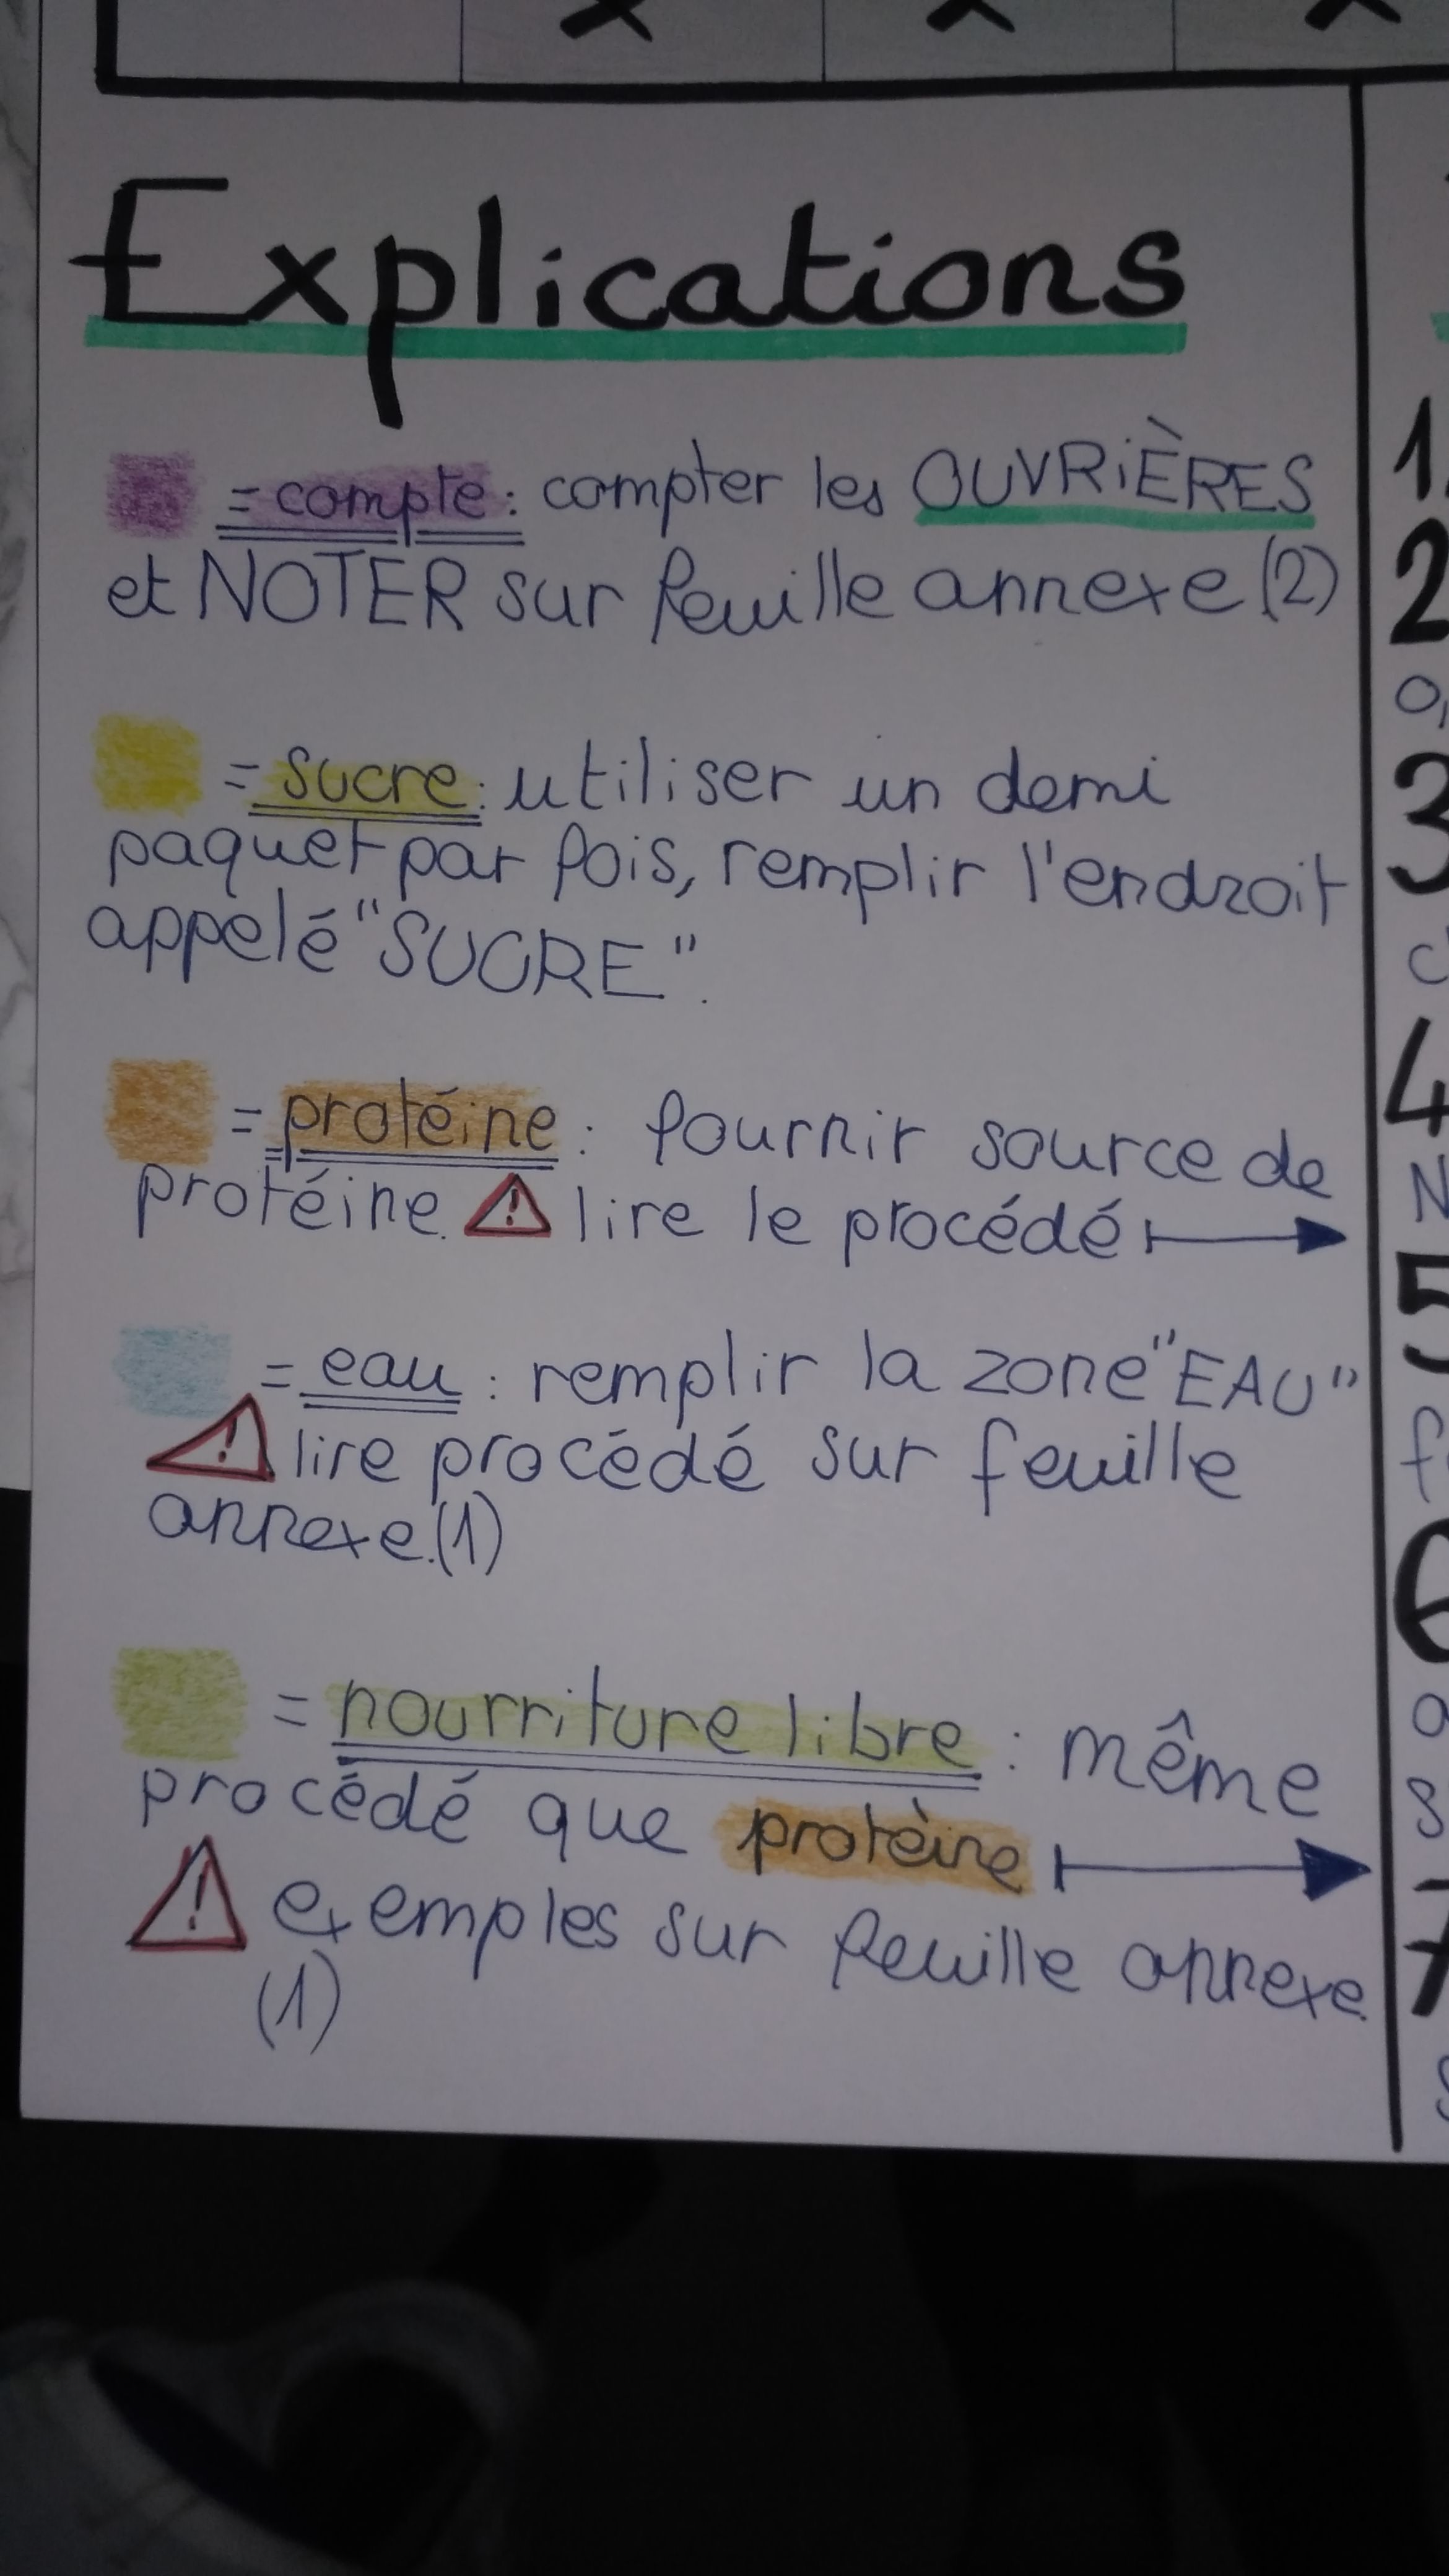 Explications
= compte : compter les OUVRIÈRES
et NOTER sur feuille annexe (2)
= sucre : utiliser un demi
paquet par fois, remplir l'endroit
appelé "SUCRE".
= protéine : fournir source de
protéine. ! lire le procédé
= eau : remplir la zone "EAU"
! lire procédé sur feuille
annexe.(1)
= nourriture libre : même
procédé que protèine
! exemples sur feuille annexe.
(1)
1.
2
3
4
N
5
6
7